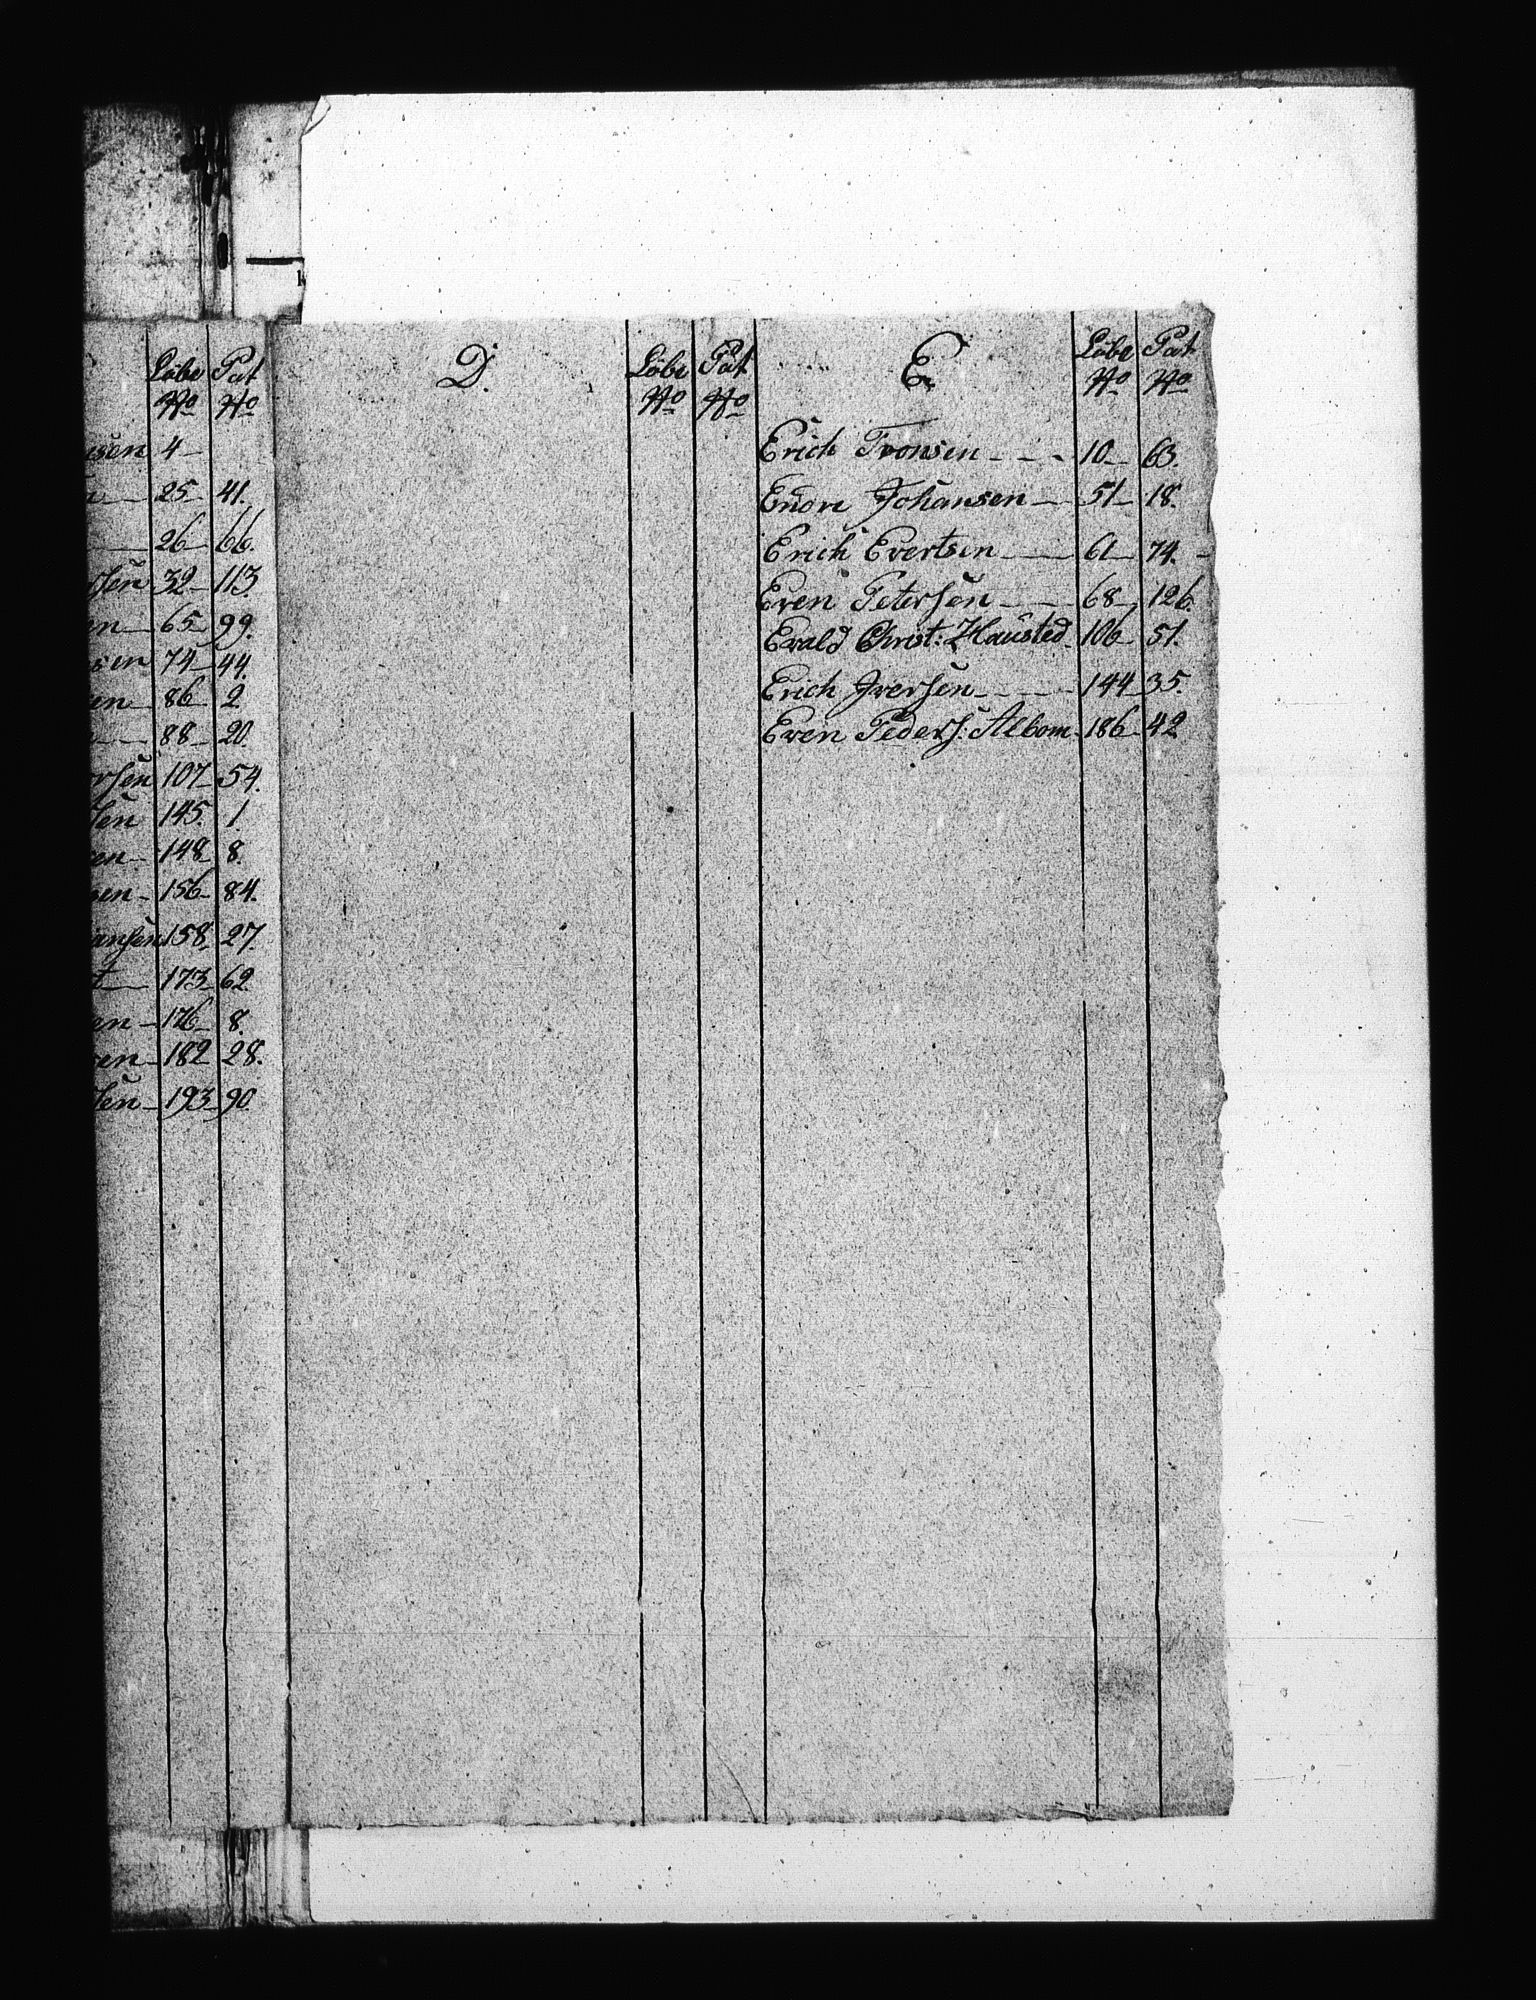 Löbe Pat
No No
4
25 41.
26 66.
32 113
65 99.
74 44.
86 2
88 20.
107 54.
145. 1.
148 8.
156 84.
158 27.
173 62
176 8.
182 28.
193 90.
D. Löbe Pat
No No
E Löbe Pat
No No
Erich Tronsen 10 63.
Enore Johansen 51 18.
Erich Evertsen 61 74.
Even Petersen 68 126.
Evald Christ: Hausted 106 51.
Erich Iversen 144 35.
Even Peders: Albom 186 42